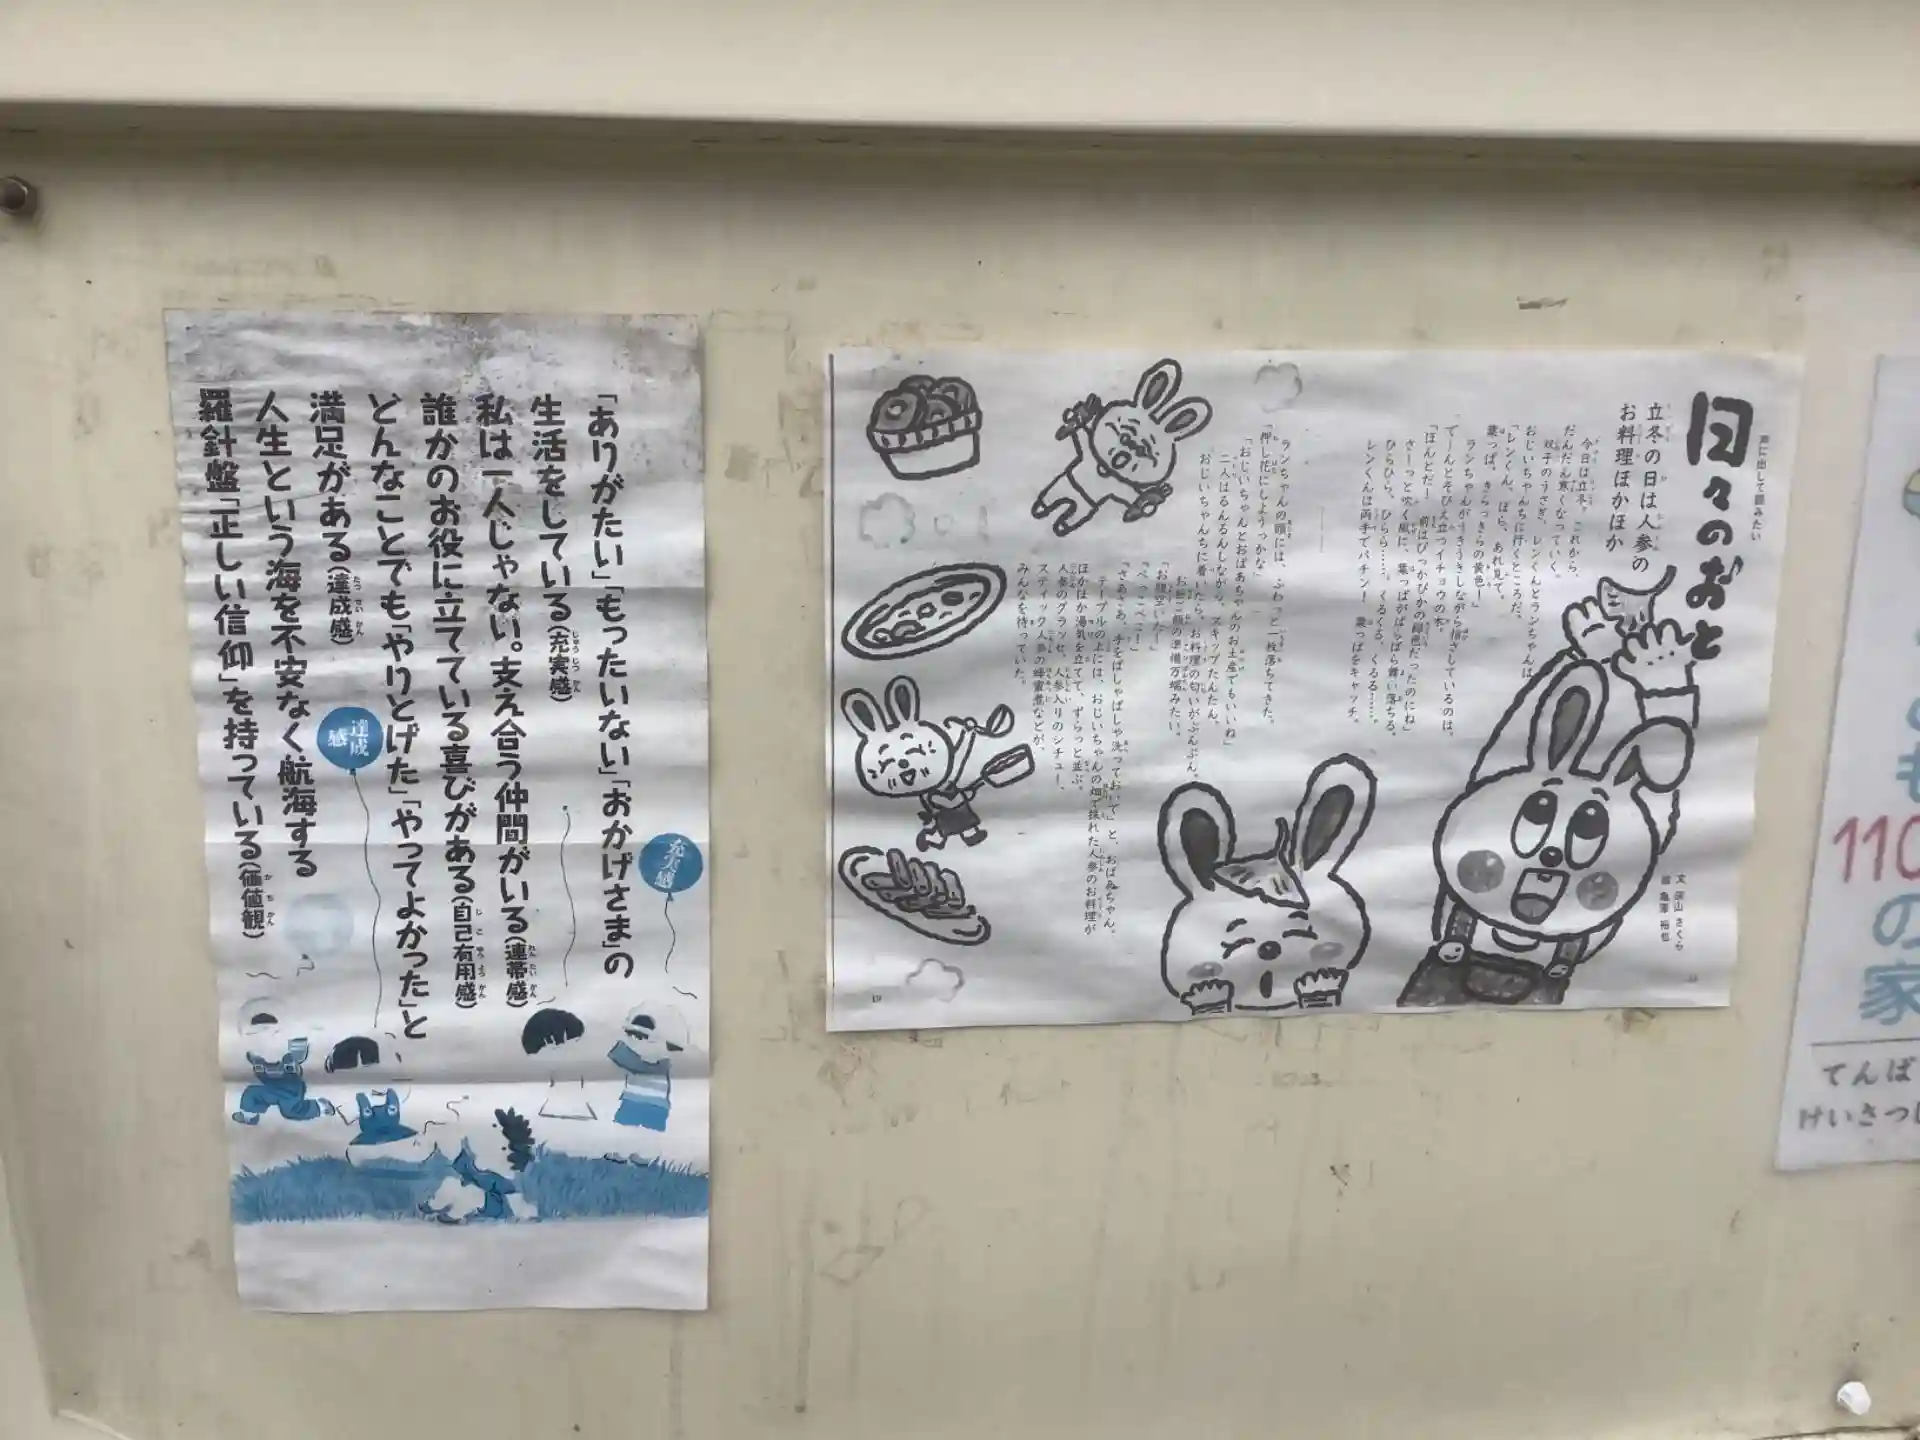 声に出して読みたい
日々のおと
立冬の日は人参の
お料理ほかほか
今日は立冬。これから、
だんだん寒くなっていく。
双子のうさぎ、レンくんとランちゃんは
おじいちゃんちに行くところだ。
「レンくん、ほら、あれ見て。
葉っぱ、きらっきらの黄色!」
ランちゃんがうきうきしながら指さしているのは、
てーんとそびえ立つイチョウの木。
「ほんとだ! 前はぴっかぴかの緑色だったのにね」
さーっと吹く風に、葉っぱがぱらぱら舞い落ちる。
ひらひら、ひらら……。くるくる、くるる……。
レンくんは両手でパチン! 葉っぱをキャッチ。
ランちゃんの頭には、ふわっと一枚落ちてきた。
「押し花にしようっかな」
「おじいちゃんとおばあちゃんのお土産でもいいね」
二人はるんるんしながら、スキップたんたん。
おじいちゃんちに着いたら、お料理の匂いがぷんぷん。
お昼ご飯の準備万端みたい。
「お腹空いたー」
「ぺっこぺこー」
「さあさあ、手をばしゃばしゃ洗っておいで」と、おばあちゃん。
テーブルの上には、おじいちゃんの畑で採れた人参のお料理が
ほかほか湯気を立てて、ずらっと並ぶ。
人参のグラッセ、人参入りのシチュー、
スティック人参の蜂蜜煮などが、
みんなを待っていた。
さくら
19
「ありがたい」「もったいない」「おかげさま」の
生活をしている(充実感)
私は一人じゃない。支え合う仲間がいる(連帯感)
誰かのお役に立てている喜びがある(自己有用感)
どんなことでも「やりとげた」「やってよかった」と
満足がある(達成感)
人生という海を不安なく航海する
羅針盤「正しい信仰」を持っている(価値観)
充実感
達成感
110
の家
てんぱ
けいさつ